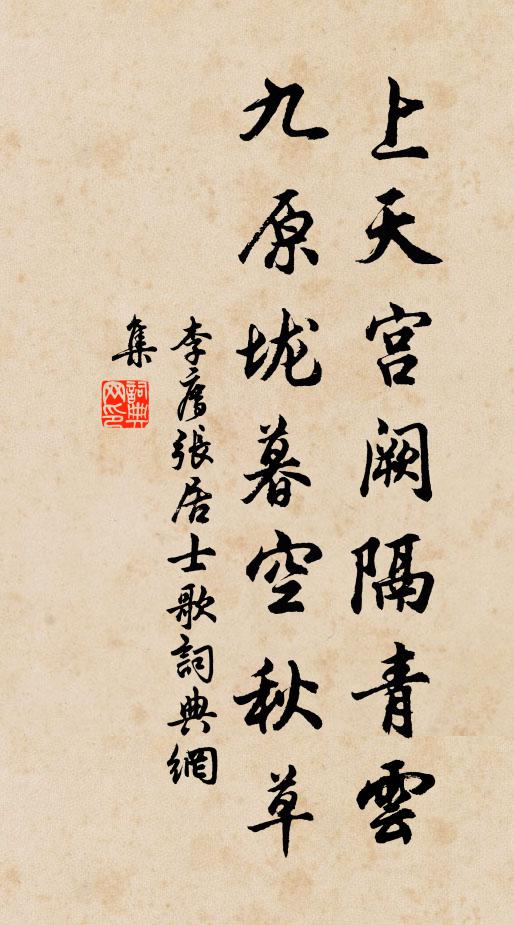 上天宫阙隔青雲
九原垅暮空秋草
李廌張居士歌詞典網
集
詞典网印